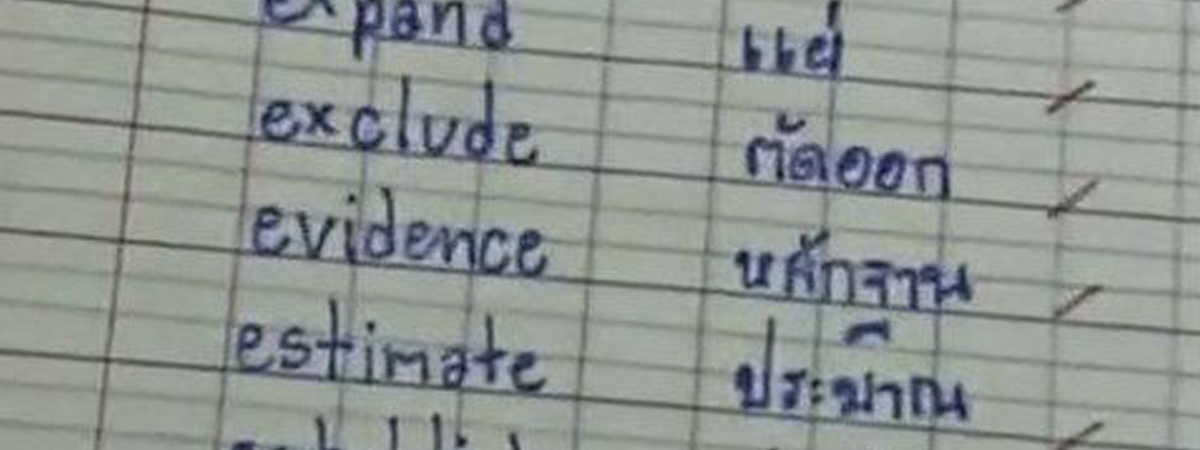 expand แผ่
exclude ตัดออก
evidence หลักฐาน
estimate ประมาณ